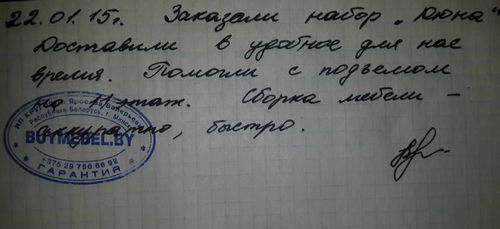 22.01.15г. Заказали набор „Юна"
Доставили в удобное для нас
время. Помогли с подъемом
на 11 этаж. Сборка мебели –
аккуратно, быстро.
Республика Беларусь, г. Минск
BUYMEBEL.BY
+375 29 750 66 92
ГАРАНТИЯ